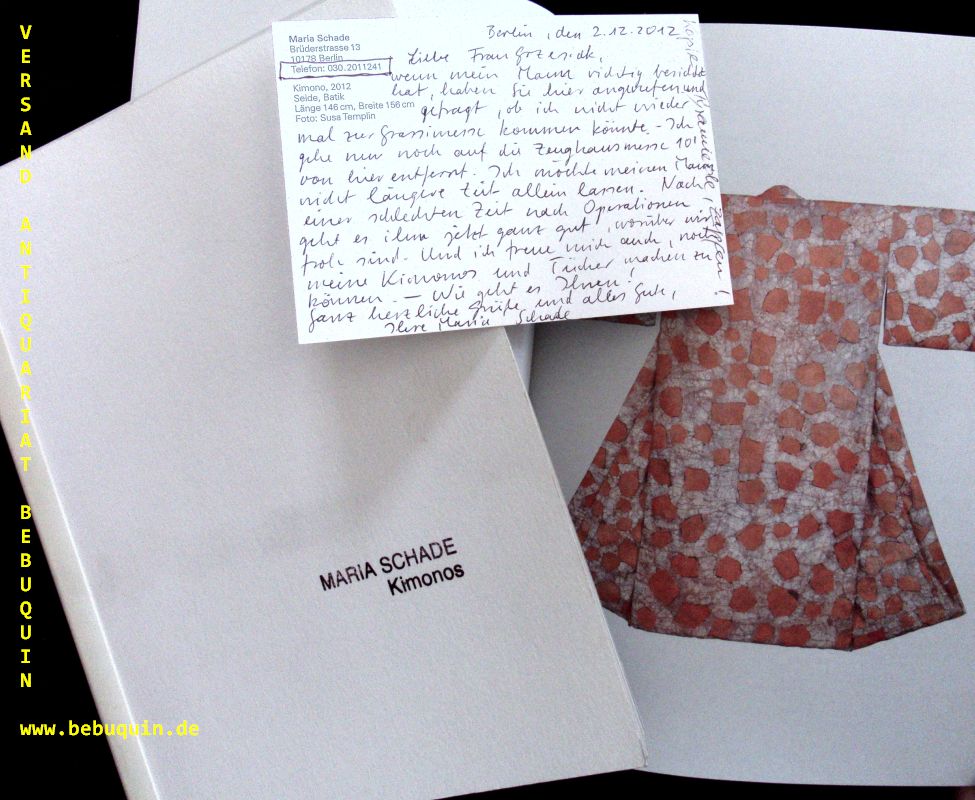 VERSAND ANTIQUARIAT BEBUQUIN
www.bebuquin.de
Maria Schade
Brüderstrasse 13
10178 Berlin
Telefon: 030.2011241
Kimono, 2012
Seide, Batik
Länge 146 cm, Breite 156 cm
Foto: Susa Templin
Berlin, den 2.12.2012
Liebe Frau Grzesiek,
wenn mein Mann richtig berichtet
hat, haben Sie hier angerufen und
gefragt, ob ich nicht wieder
mal zur Grassimesse kommen könnte. - Ich
gehe nur noch auf die Zeughausmesse 10'
von hier entfernt. Ich möchte meinen Mann
nicht längere Zeit allein lassen. Nach
einer schlechten Zeit nach Operationen
geht es ihm jetzt ganz gut, worüber wir
froh sind. Und ich freue mich auch, noch
meine Kimonos und Tücher machen zu
können. — Wie geht es Ihnen?
Ganz herzliche Grüße und alles Gute,
Ihre Maria Schade
MARIA SCHADE
Kimonos